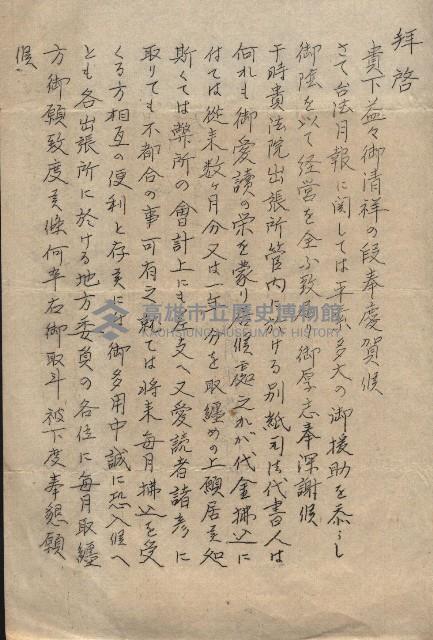 拝啓
貴下益々御清祥の段奉慶賀候
さて台法月報に関しては平素多大の御援助を忝ふし
御蔭を以て経営を全ふ致し御厚志奉深謝候
干時貴法院出張所管内に於ける別紙司法代書人は
何れも御愛読の栄を蒙り居候處之れが代金拂込に
付ては従来数ヶ月分又は一年分を取纏めの上願居候処
斯くては弊所の會計上にも差支へ又愛読者諸彦に
取りても不都合の事可有之就ては将来毎月拂込を受
くる方相互の便利と存候に付御多用中誠に恐入候へ
とも各出張所に於ける地方委員の各位に毎月取纏
方御願致度候條何卒右御取斗被下度奉懇願
候
高雄市立歷史博物館
KAOHSIUNG MUSEUM OF HISTORY